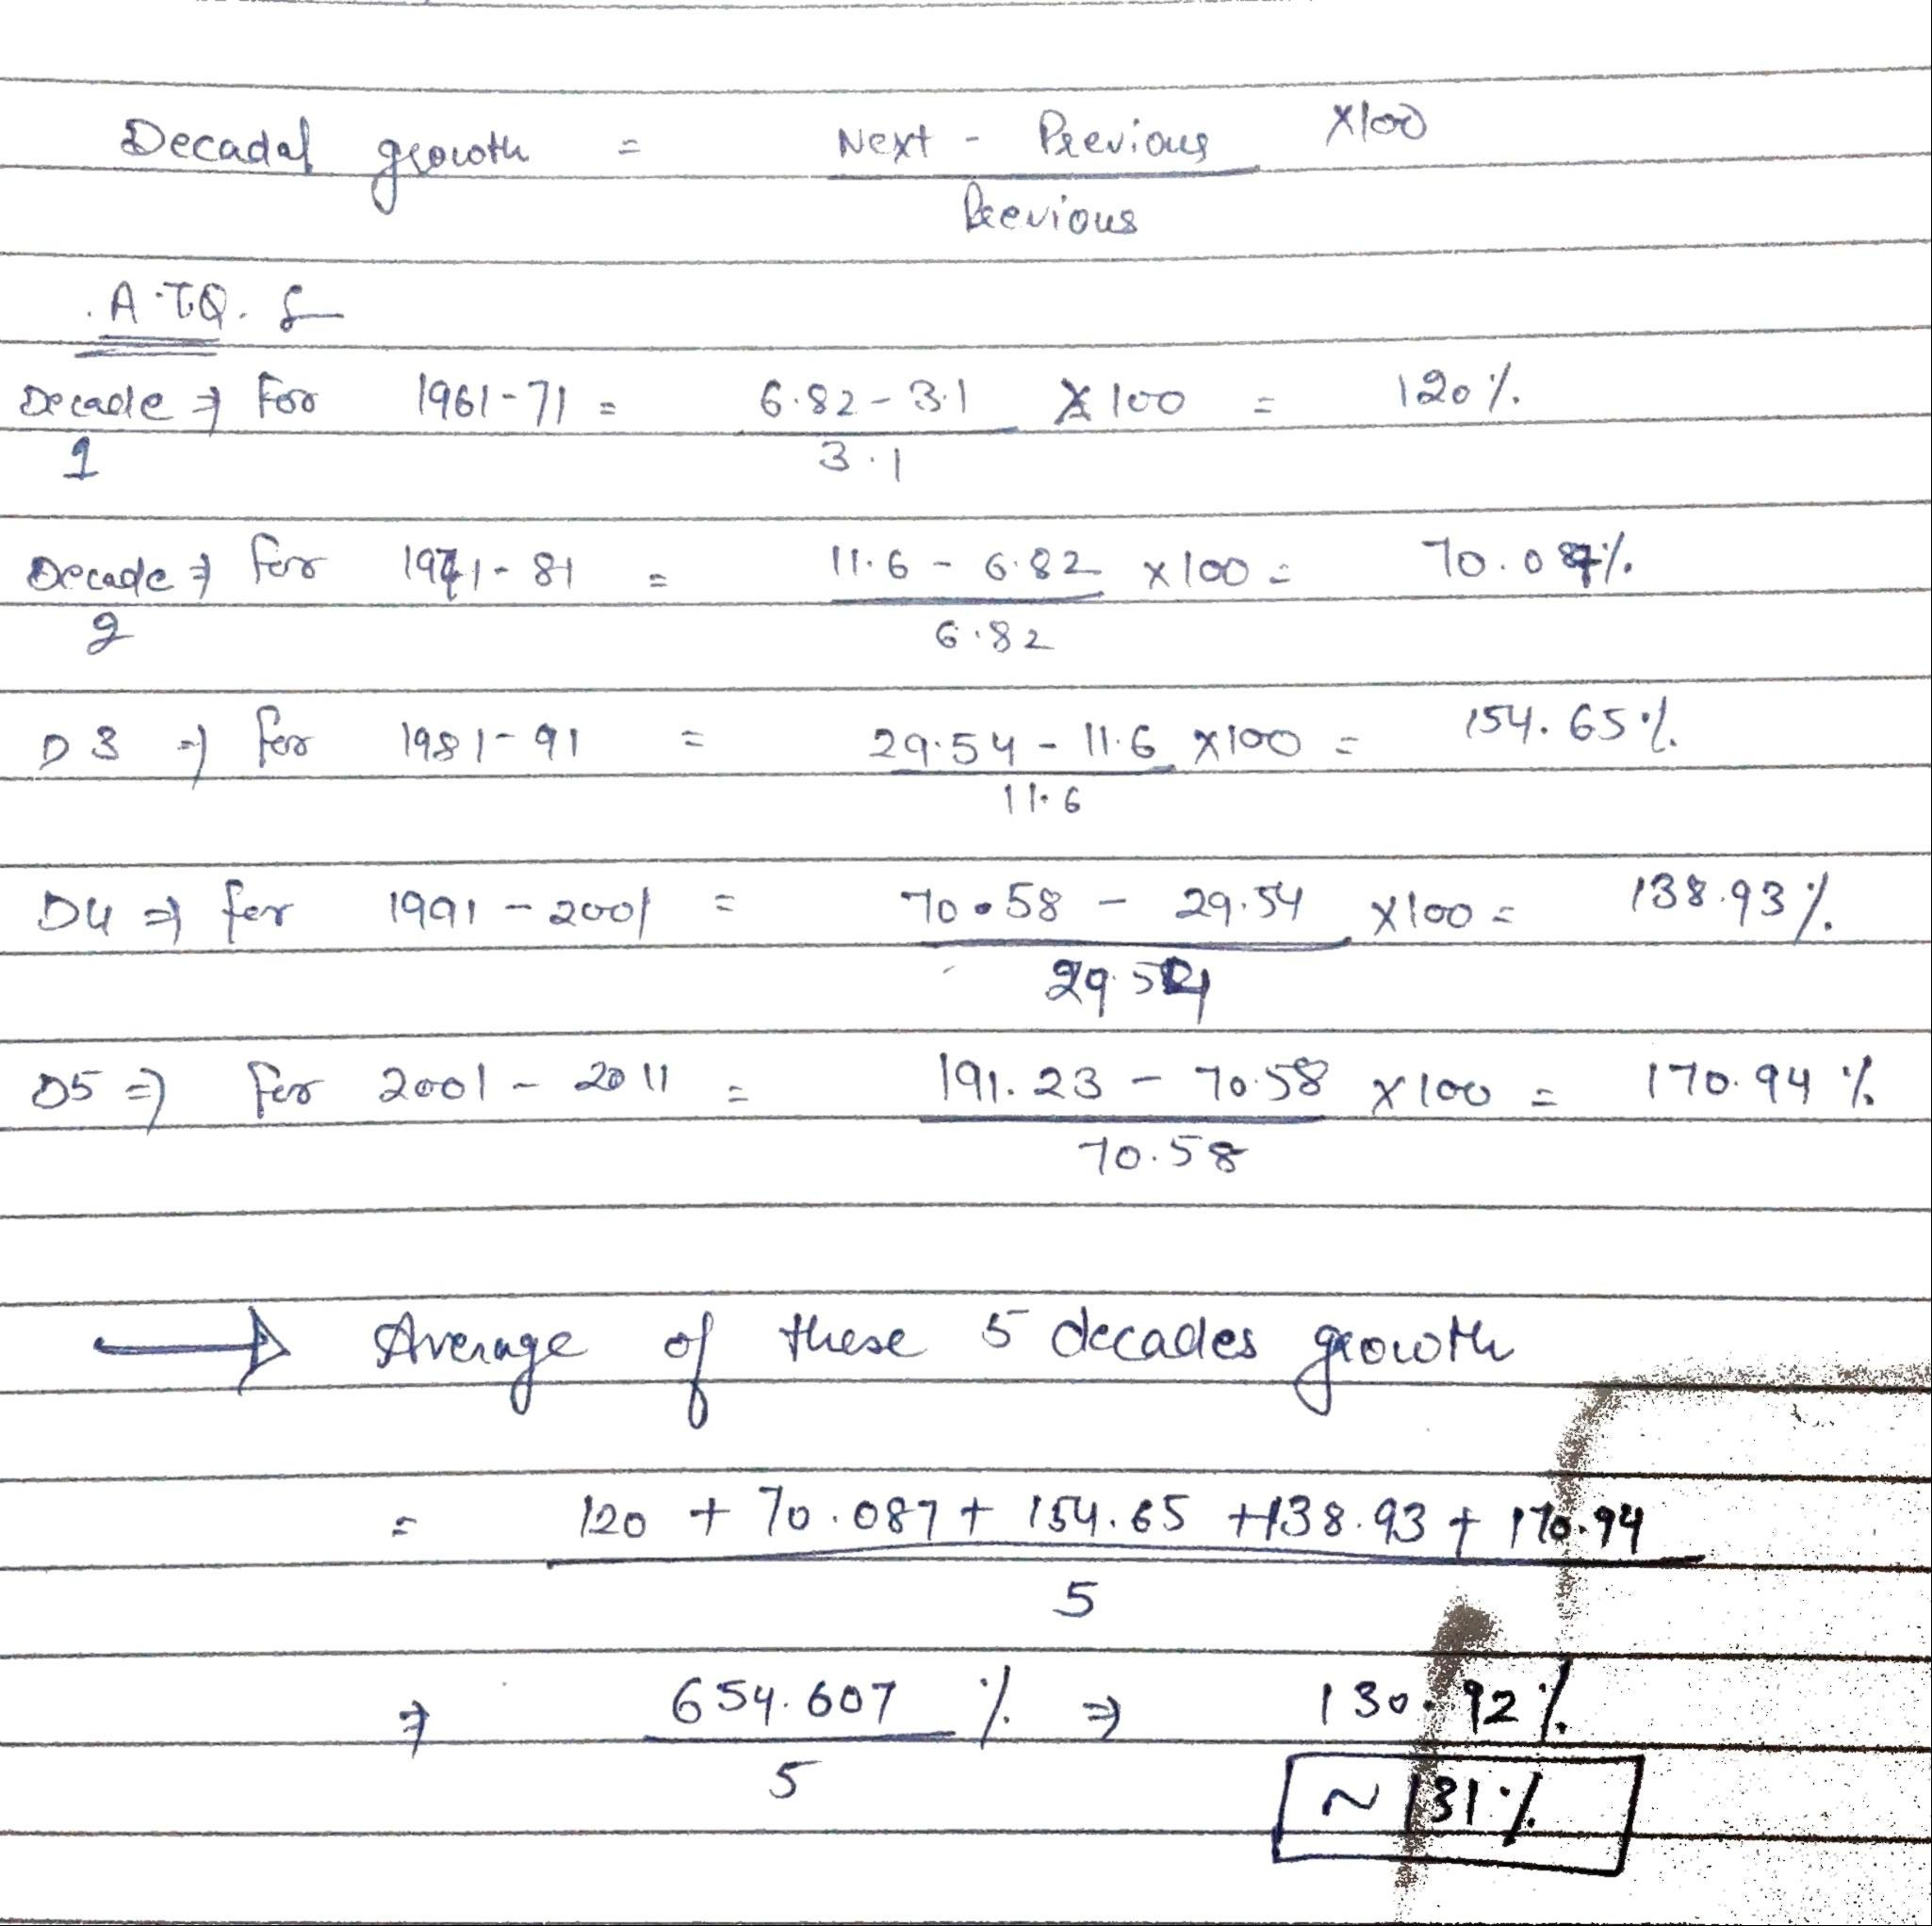 Decadal growth = Next - Previous X100
Previous
A.T.Q.
Decade ⇒ For 1961-71 = 6.82 - 3.1 X 100 = 120%.
1 3.1
Decade ⇒ for 1971-81 = 11.6 - 6.82 x100 = 70.087%.
2 6.82
D3 ⇒ for 1981-91 = 29.54 - 11.6 X100 = 154.65%.
11.6
D4 ⇒ for 1991-2001 = 70.58 - 29.54 X100 = 138.93%.
29.54
D5 ⇒ for 2001 - 2011 = 191.23 - 70.58 X100 = 170.94 %.
70.58
→ Average of these 5 decades growth
= 120 + 70.087 + 154.65 + 138.93 + 170.94
5
⇒ 654.607 %. ⇒ 130.92%.
5
~ 131%.